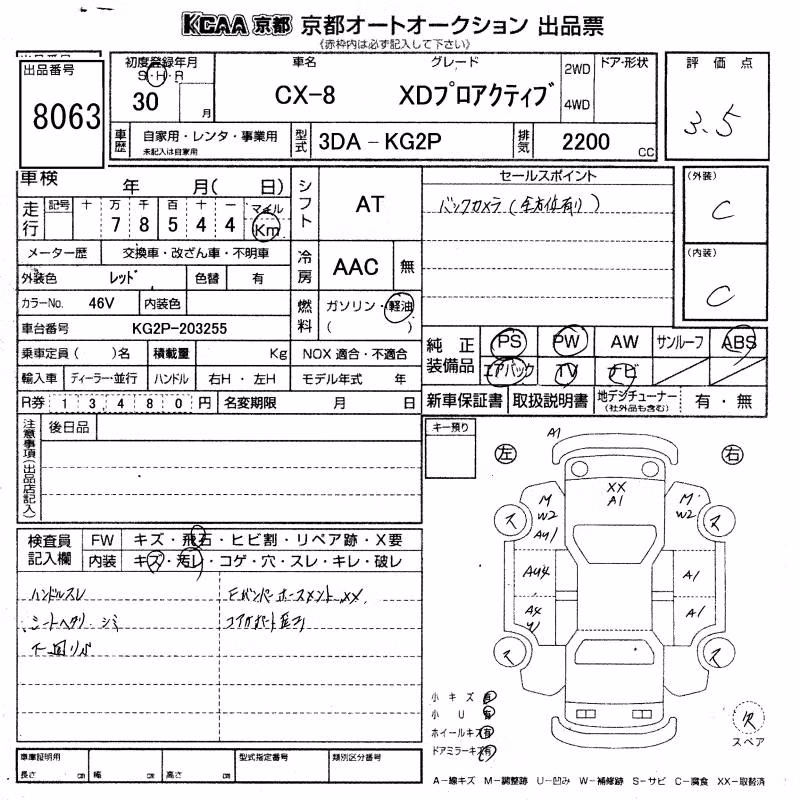 KCAA 京都 京都オートオークション 出品票
《赤枠内は必ず記入して下さい》
出品番号
8063
初度登録年月
S・H・R
30 月
車名
CX-8
グレード
XDプロアクティブ
2WD
4WD
ドア・形状
評価点
3.5
車歴 自家用・レンタ・事業用
未記入は自家用
型式 3DA-KG2P
排気 2200 CC
車検 年 月( 日)
走行 記号 十 万 千 百 十 一 マイル
7 8 5 4 4 Km
シフト AT
メーター歴 交換車・改ざん車・不明車
外装色 レッド 色替 有
冷房 AAC 無
カラーNo. 46V 内装色
燃料 ガソリン・軽油
( )
車台番号 KG2P-203255
乗車定員( )名 積載量 Kg NOX 適合・不適合
輸入車 ディーラー・並行 ハンドル 右H・左H モデル年式 年
R券 13480円 名変期限 月 日
セールスポイント
バックカメラ(全方位有り)
(外装)
C
(内装)
C
純正装備品 PS PW AW サンルーフ ABS
エアバック TV ナビ
新車保証書 取扱説明書 地デジチューナー 有・無
(社外品も含む)
注意事項(出品店記入)
後日品
キー預り
検査員記入欄
FW キズ・飛石・ヒビ割・リペア跡・X要
内装 キズ・汚レ・コゲ・穴・スレ・キレ・破レ
ハンドルスレ
シートヘタリ、シミ
下回りサビ
FバンパーホースメントXX
左
右
A1
XX
A1
M
W2
AU1
M
W2
ス
ス
AU4
A1
A4
A1
ス
ス
小キズ 有
小U 有
ホイールキズ 有
ドアミラーキズ 有
欠
スペア
車庫証明用
長さ cm 幅 cm 高さ cm
型式指定番号
類別区分番号
A-線キズ M-調整跡 U-凹み W-補修跡 S-サビ C-腐食 XX-取替済